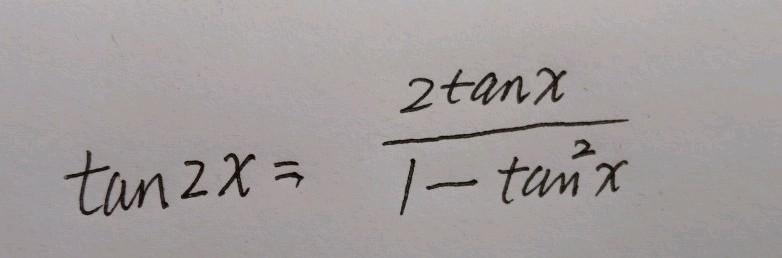 tan2x = \frac{2tanx}{1-tan^2x}